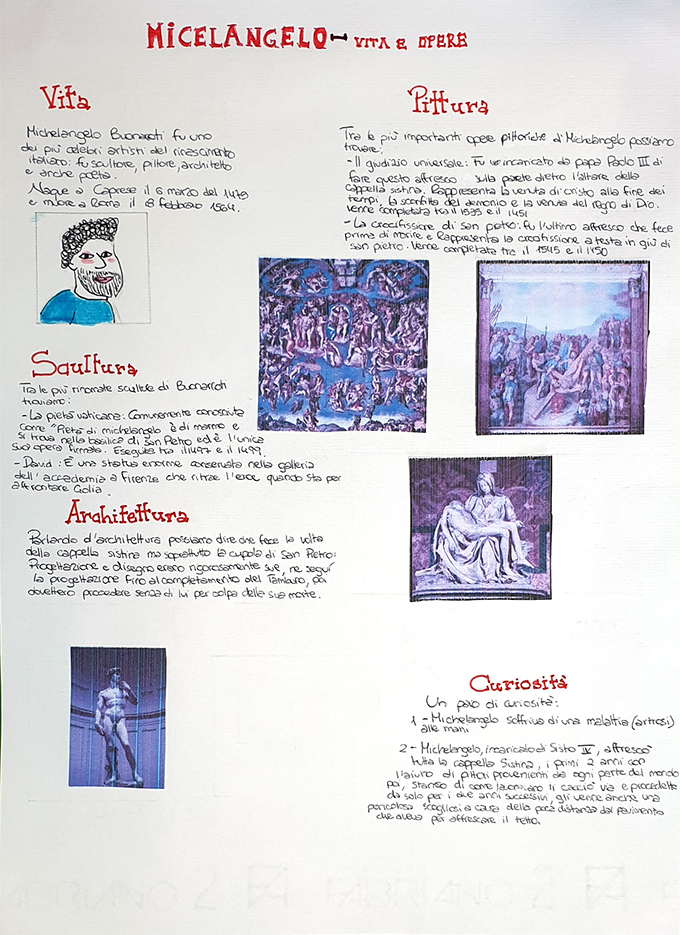 MICELANGELO - VITA E OPERE
Vita
Michelangelo Buonarroti fu uno
dei più celebri artisti del rinascimento
italiano: fu scultore, pittore, architetto
e anche poeta.
Naque a Caprese il 6 marzo del 1475
e muore a Roma il 18 febbraio 1564.
Scultura
Tra le più rinomate sculture di Buonarroti
troviamo:
- La pietà vaticana: Comunemente conosciuta
come "Pietà di michelangelo è di marmo e
si trova nella basilica di San Pietro ed è l'unica
sua opera firmata. Eseguita tra il 1497 e il 1499.
- David: È una statua enorme conservata nella galleria
dell'accademia a Firenze che ritrae l'eroe quando sta per
affrontare Golia.
Architettura
Parlando d'architettura possiamo dire che fece la volta
della cappella sistina ma soprattutto la cupola di San Pietro:
Progettazione e disegno erano rigorosamente sue, ne seguì
la progettazione fino al completamento del Tamburo, poi
dovettero procedere senza di lui per colpa della sua morte.
Pittura
Tra le più importanti opere pittoriche di Michelangelo possiamo
trovare:
- Il giudizio universale: Fu un'incaricato da papa Paolo III di
fare questo affresco sulla parete dietro l'altare della
cappella sistina. Rappresenta la venuta di cristo alla fine dei
tempi, la sconfitta del demonio e la venuta del regno di Dio.
Venne completata tra il 1535 e il 1451
- La crocifissione di san pietro: fu l'ultimo affresco che fece
prima di morire e Rappresenta la crocifissione a testa in giù di
san pietro. Venne completata tra il 1545 e il 1550
Curiosità
Un paio di curiosità:
1 - Michelangelo soffriva di una malattia (artrosi)
alle mani
2 - Michelangelo, incaricato di Sisto IV, affrescò
tutta la cappella Sistina, i primi 2 anni con
l'aiuto di pittori provenienti da ogni parte del mondo
poi, stanco di come lavoravano li cacciò via e procedette
da solo per i due anni successivi, gli venne anche una
pericolosa scogliosi a causa della poca distanza dal pavimento
che aveva per affrescare il tetto.
FABRIANO 2 F4 FABRIANO 2 F4